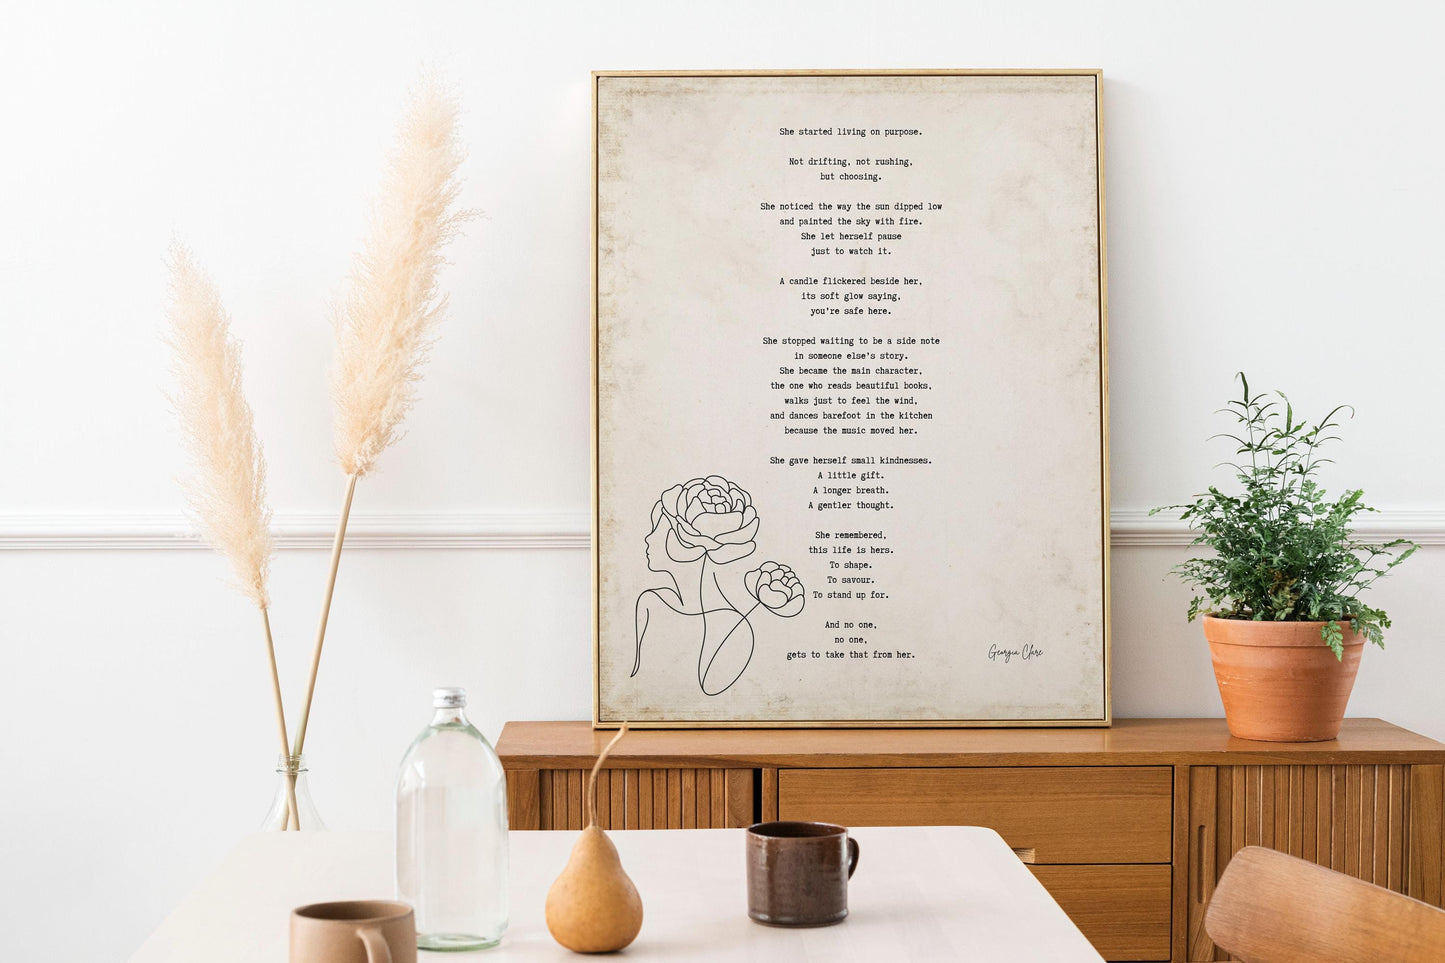 She started living on purpose.
Not drifting, not rushing,
but choosing.
She noticed the way the sun dipped low
and painted the sky with fire.
She let herself pause
just to watch it.
A candle flickered beside her,
its soft glow saying,
you're safe here.
She stopped waiting to be a side note
in someone else's story.
She became the main character,
the one who reads beautiful books,
walks just to feel the wind,
and dances barefoot in the kitchen
because the music moved her.
She gave herself small kindnesses.
A little gift.
A longer breath.
A gentler thought.
She remembered,
this life is hers.
To shape.
To savour.
To stand up for.
And no one,
no one,
gets to take that from her.
Georgia Clare